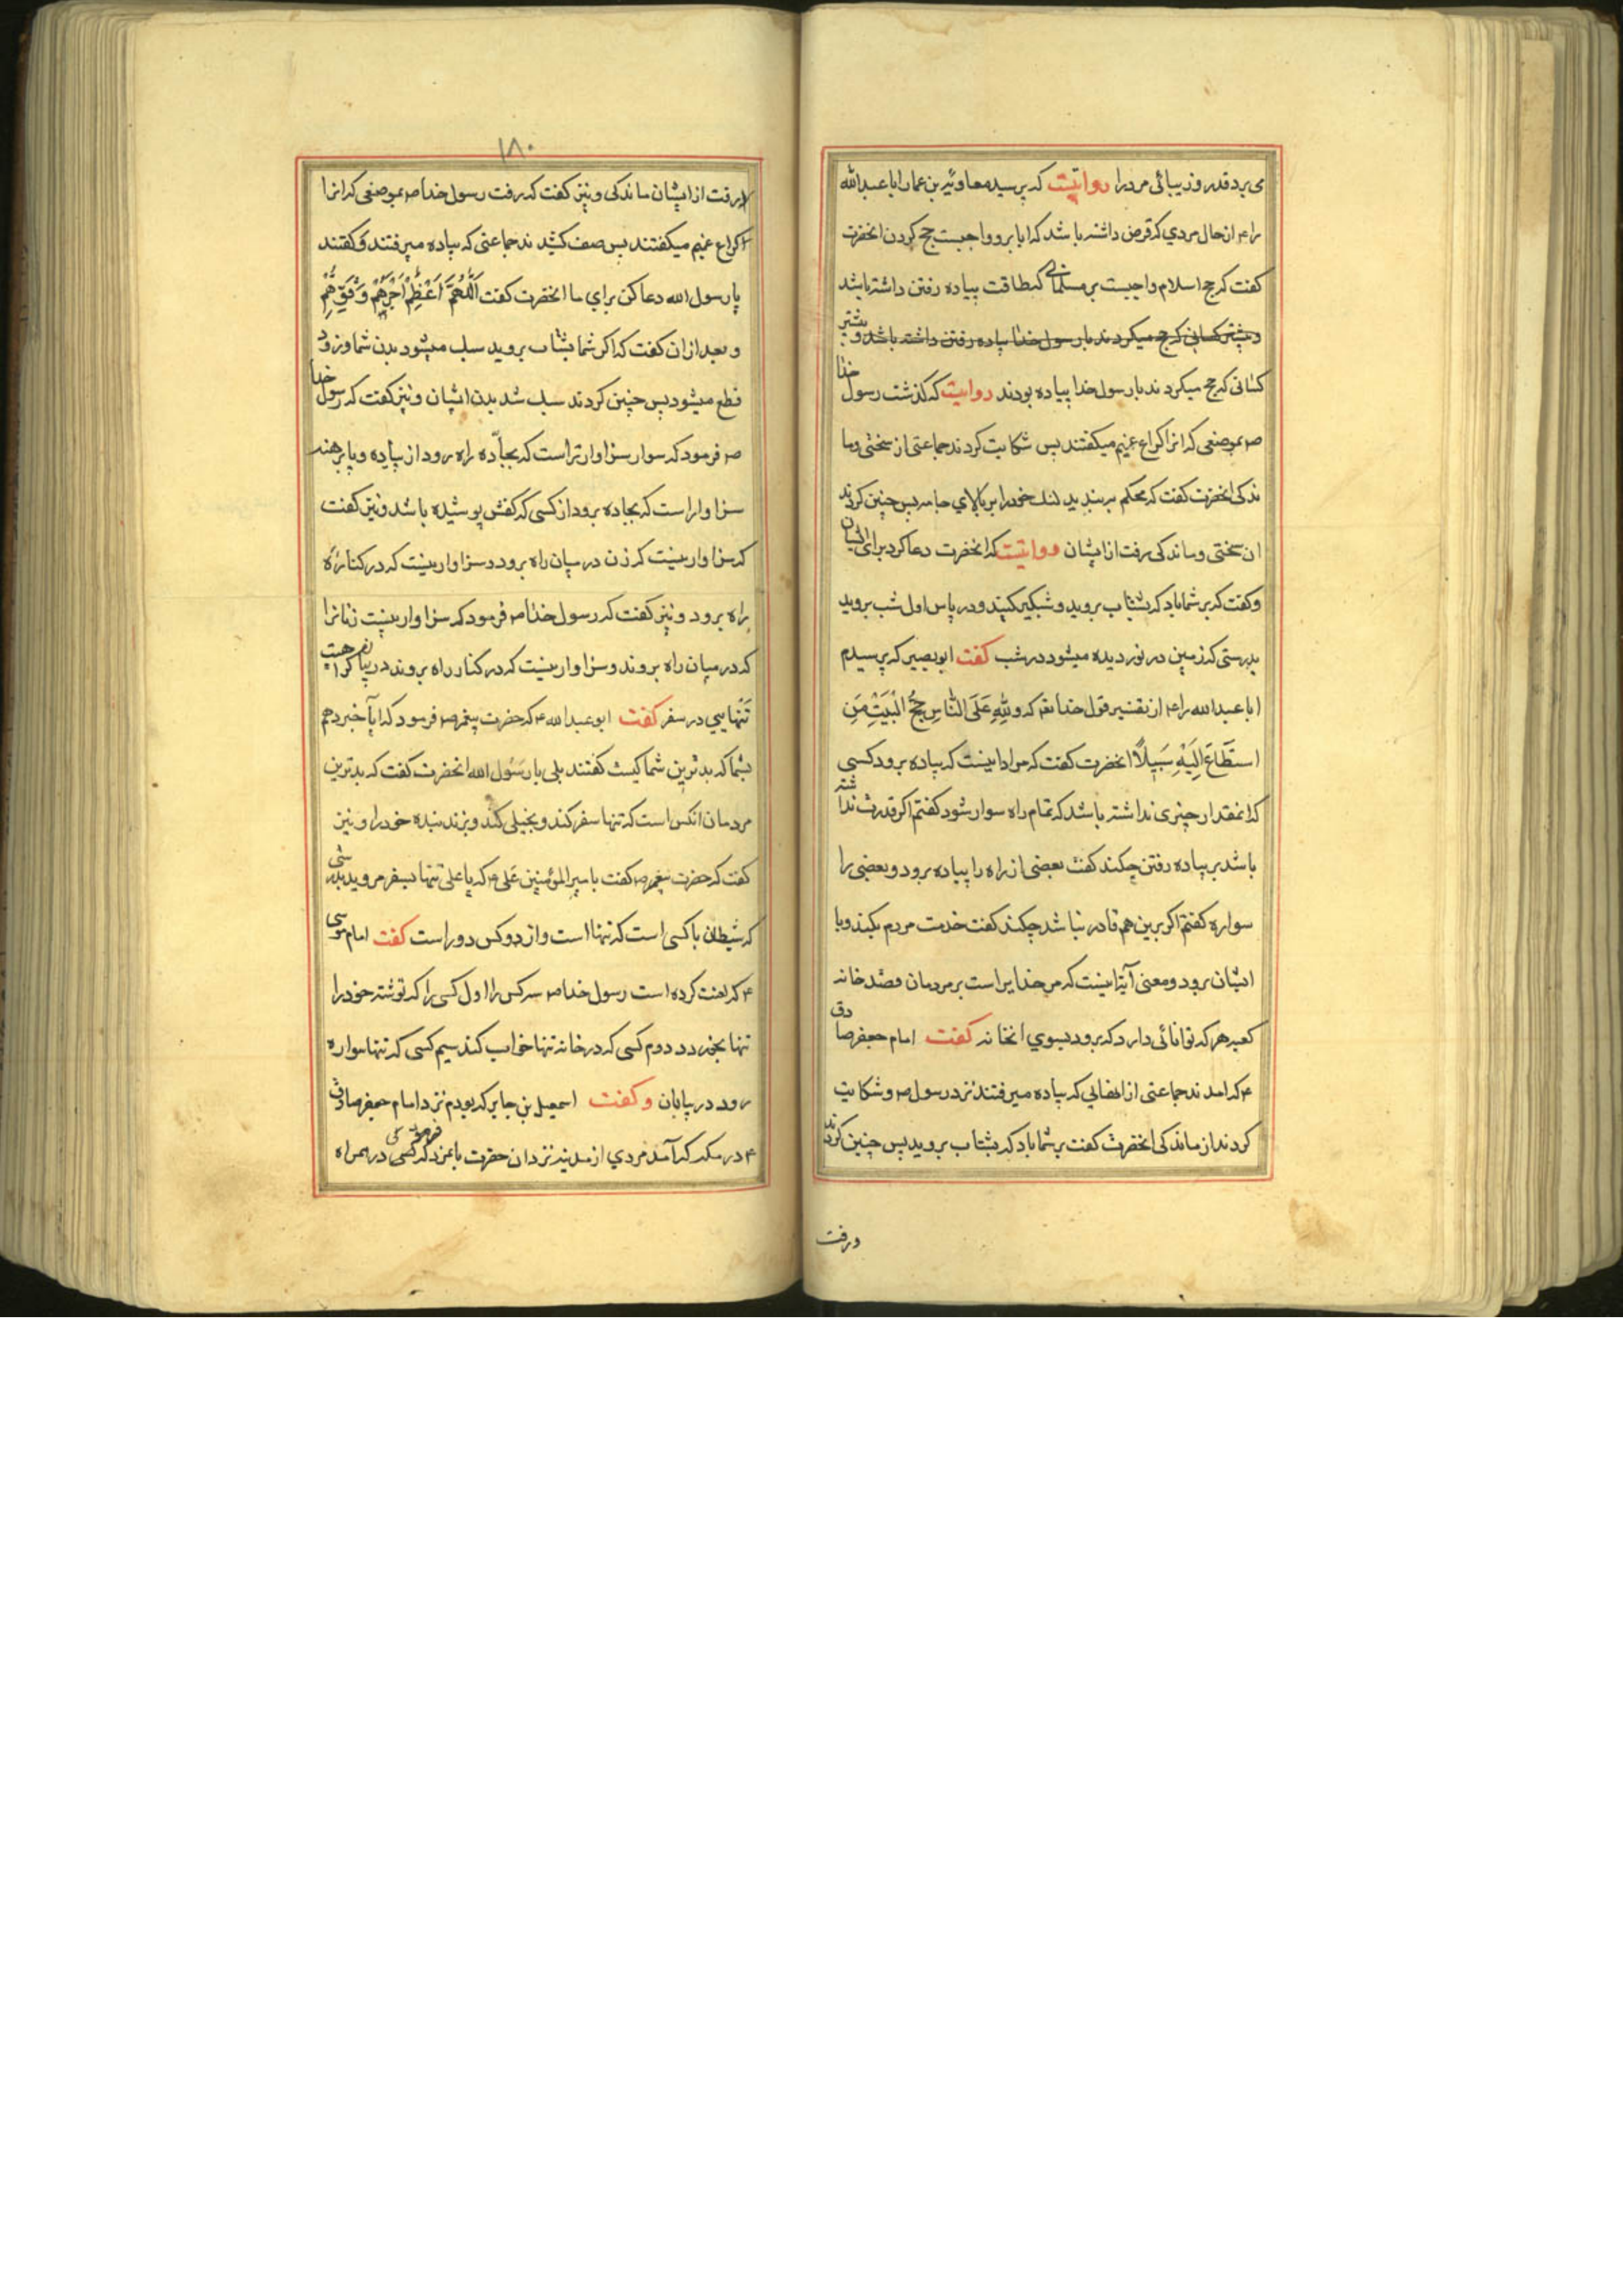 می برد قدر و زیبائی مرد را روایتست که پرسید معاویه بن عمار ابا عبدالله
را ع از حال مردی که قرض داشته باشد که ایا برو واجبست حج کردن انحضرت
گفت که حج اسلام واجبست بر مسلمانی که طاقت پیاده رفتن داشته باشد
و بیشتر کسانی که حج میکردند با رسول خدا پیاده رفتن داشته باشد و بیشتر
کسانی که حج میکردند با رسول خدا پیاده بودند روایتست که گذشت رسول خدا
ص بموضعی که انرا کراع غمیم میکفتند پس شکایت کردند جماعتی از سختی و ما
ندکی انحضرت گفت که محکم بربندید لنک خود را بر بالای جامه پس چنین کردند
ان سختی و ماندکی رفت از ایشان روایتست که انحضرت دعا کرد برای ایشان
و گفت که بر شما باد که بشتاب بروید و شبگیر کنید و در پاس اول شب بروید
بدرستی که زمین در نوردیده میشود در شب گفت ابو بصیر که پرسیدم
ابا عبدالله را ع از تفسیر قول خدا تع که وَلِلّٰهِ عَلَى النَّاسِ حِجُّ الْبَيْتِ مَنِ
اسْتَطَاعَ اِلَيْهِ سَبِيلًا انحضرت گفت که مراد اینست که پیاده برود کسی
که انمقدار چیزی نداشته باشد که تمام راه سوار شود گفتم اکر قدرت نداشته
باشد بر پیاده رفتن چکند گفت بعضی از راه را پیاده برود و بعضی را
سواره گفتم اکر برین هم قادر نباشد چکند گفت خدمت مردم بکند و با
ایشان برود و معنی آیه اینست که مر خدایراست بر مردمان قصد خانه
کعبه هر که توانائی دارد که برود بسوی انخانه گفت امام جعفر صادق
ع که امدند جماعتی از انهایی که پیاده میرفتند نزد رسول ص و شکایت
کردند از ماندکی انحضرت گفت بر شما باد که بشتاب بروید پس چنین کردند
و رفت
۱۸۰
و رفت از ایشان ماندکی و نیز گفت که رفت رسول خدا ص بموضعی که انرا
کراع غمیم میکفتند پس صف کشیدند جماعتی که پیاده میرفتند و گفتند
یا رسول الله دعا کن برای ما انحضرت گفت اَللّٰهُمَّ اَعْظِمْ اَجْرَهُمْ وَقَوِّهِمْ
و بعد ازان گفت که اکر شما بشتاب بروید سبک میشود بدن شما و زود
قطع میشود پس چنین کردند سبک شد بدن ایشان و نیز گفت که رسول خدا
ص فرمود که سوار سزاوارتر است که بجاده راه رود از پیاده و پا برهنه
سزاوار است که بجاده برود از کسی که کفش پوشیده باشد و نیز گفت
که سزاوار نیست که زن در میان راه برود و سزاوار نیست که در کناره
راه برود و نیز گفت که رسول خدا ص فرمود که سزاوار نیست زنانرا
که در میان راه بروند و سزاوار نیست که در کنار راه بروند در بیان کراهیت
تنهایی در سفر گفت ابو عبدالله ع که حضرت پیغمبر ص فرمود که ایا خبر دهم
بشما که بدترین شما کیست گفتند بلی یا رسول الله انحضرت گفت که بدترین
مردمان انکس است که تنها سفر کند و بخیلی کند و بزند بنده خود را و نیز
گفت که حضرت پیغمبر ص گفت با میرالمؤمنین علی ع که یا علی تنها بسفر مرو بدرستی
که شیطان با کسی است که تنها است و از دو کس دور است گفت امام موسی
ع که لعنت کرده است رسول خدا ص سه کس را اول کسی را که توشه خود را
تنها بخورد دوم کسی که در خانه تنها خواب کند سیم کسی که تنها سواره
رود در بیابان و گفت اسمعیل بن جابر که بودم نزد امام جعفر صادق
ع در مکه که آمد مردی از مدینه نزد ان حضرت فرمود که کسی در همراه